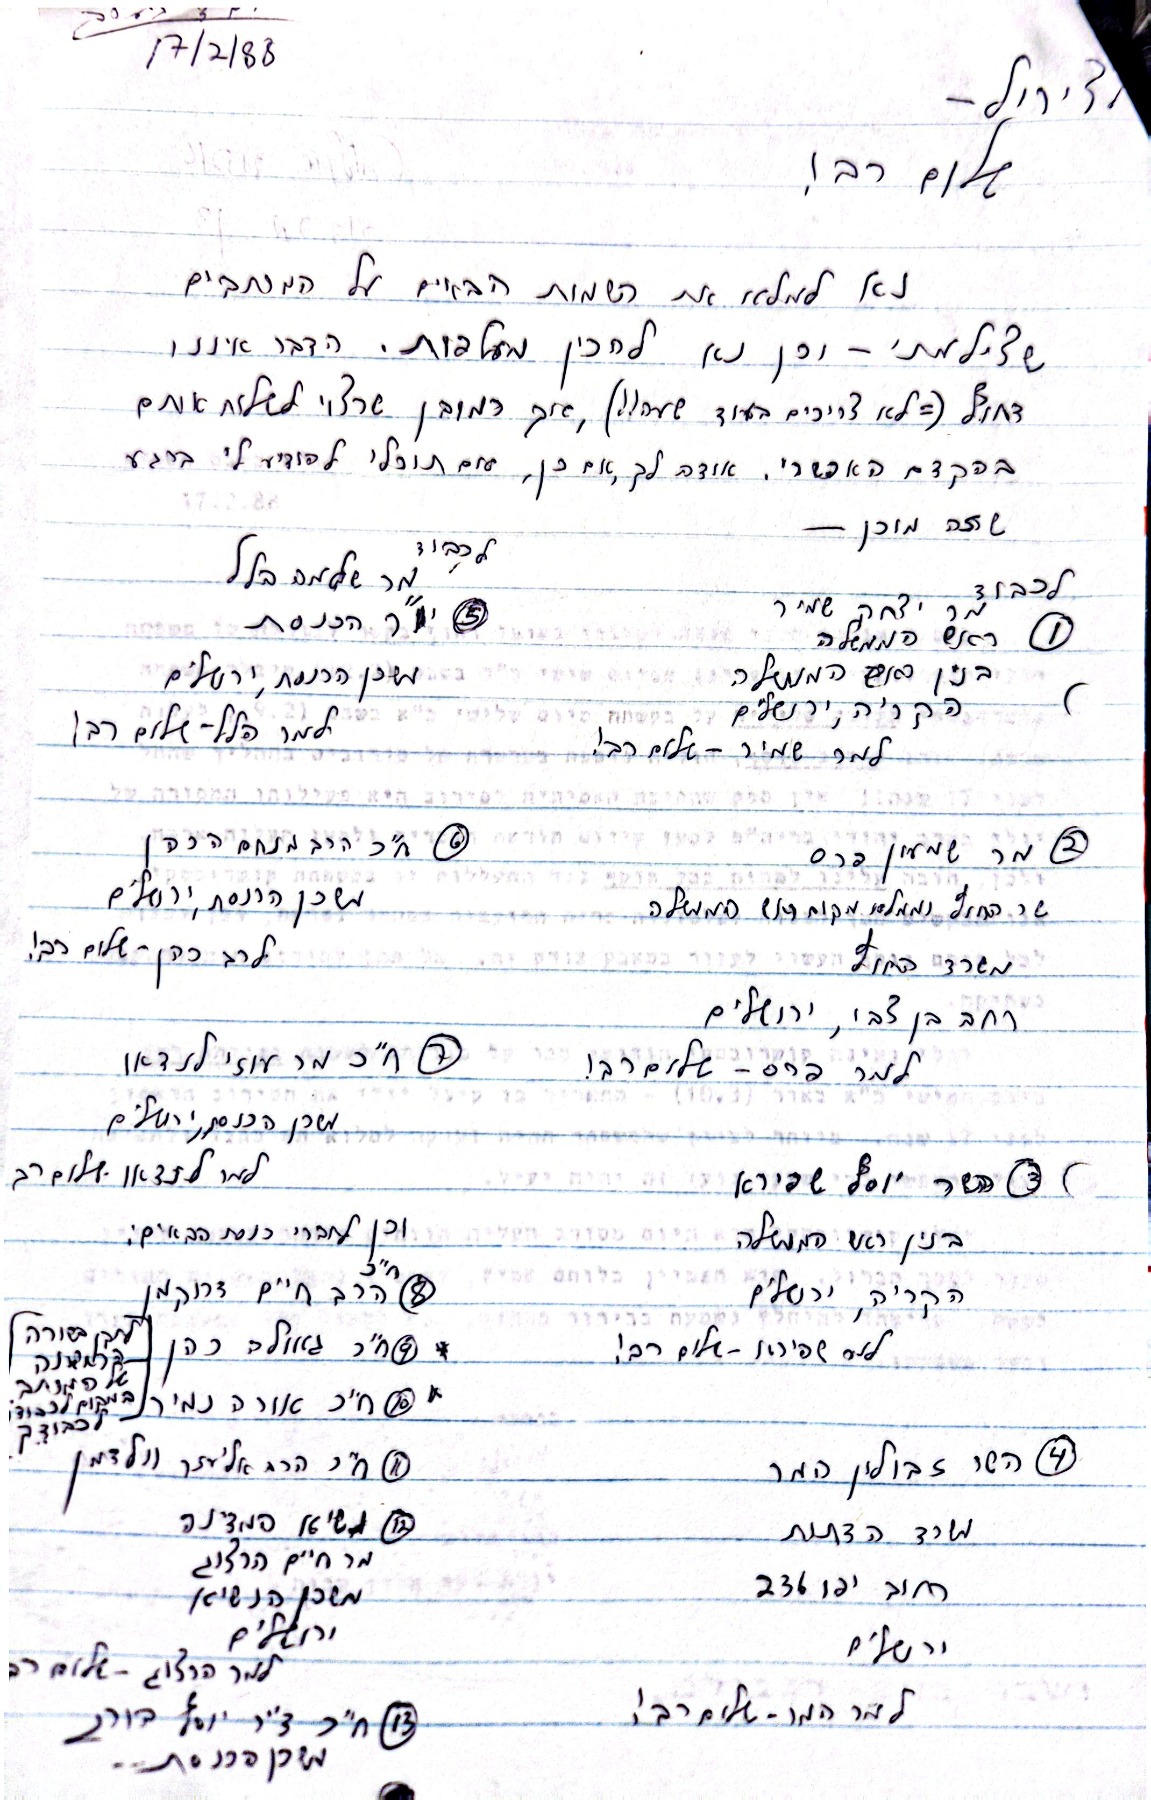 17/2/88
שלום רב!
נא למלא את השמות הבאים על המכתבים
שצילמתי – וכן נא להכין מעטפות. הדבר איננו
דחוף (=לא צריכים בעוד שעה!!), אך כמובן שרצוי לשלוח אותם
בהקדם האפשרי. אודה לך, אם כן, אם תוכלי להודיע לי ברגע
שזה מוכן –
לכבוד
מר יצחק שמיר
① ראש הממשלה
בנין ראש הממשלה
הקריה, ירושלים
למר שמיר – שלום רב!
② מר שמעון פרס
שר החוץ וממלא מקום ראש הממשלה
משרד החוץ
רחב בן צבי, ירושלים
למר פרס – שלום רב!
③ השר יוסף שפירא
בנין ראש הממשלה
הקריה, ירושלים
למר שפירא – שלום רב!
④ השר זבולון המר
משרד הדתות
רחוב יפו 236
ירושלים
למר המר – שלום רב!
לכבוד
מר שלמה הלל
⑤ יו"ר הכנסת
משכן הכנסת, ירושלים
למר הלל – שלום רב!
⑥ ח"כ הרב מנחם הכהן
משכן הכנסת, ירושלים
לרב כהן – שלום רב!
⑦ ח"כ מר עוזי לנדאו
משכן הכנסת, ירושלים
למר לנדאו – שלום רב
וכן לחברי כנסת הבאים:
⑧ ח"כ הרב חיים דרוקמן
* ⑨ ח"כ גאולה כהן
* ⑩ ח"כ אורה נמיר
בשורה
של המכתב
במקום לכבודו:
לכבודך
⑪ ח"כ הרב אליעזר וולדמן
⑫ נשיא המדינה
מר חיים הרצוג
משכן הנשיא
ירושלים
למר הרצוג – שלום רב
⑬ ח"כ ד"ר יוסף בורג
משכן הכנסת...